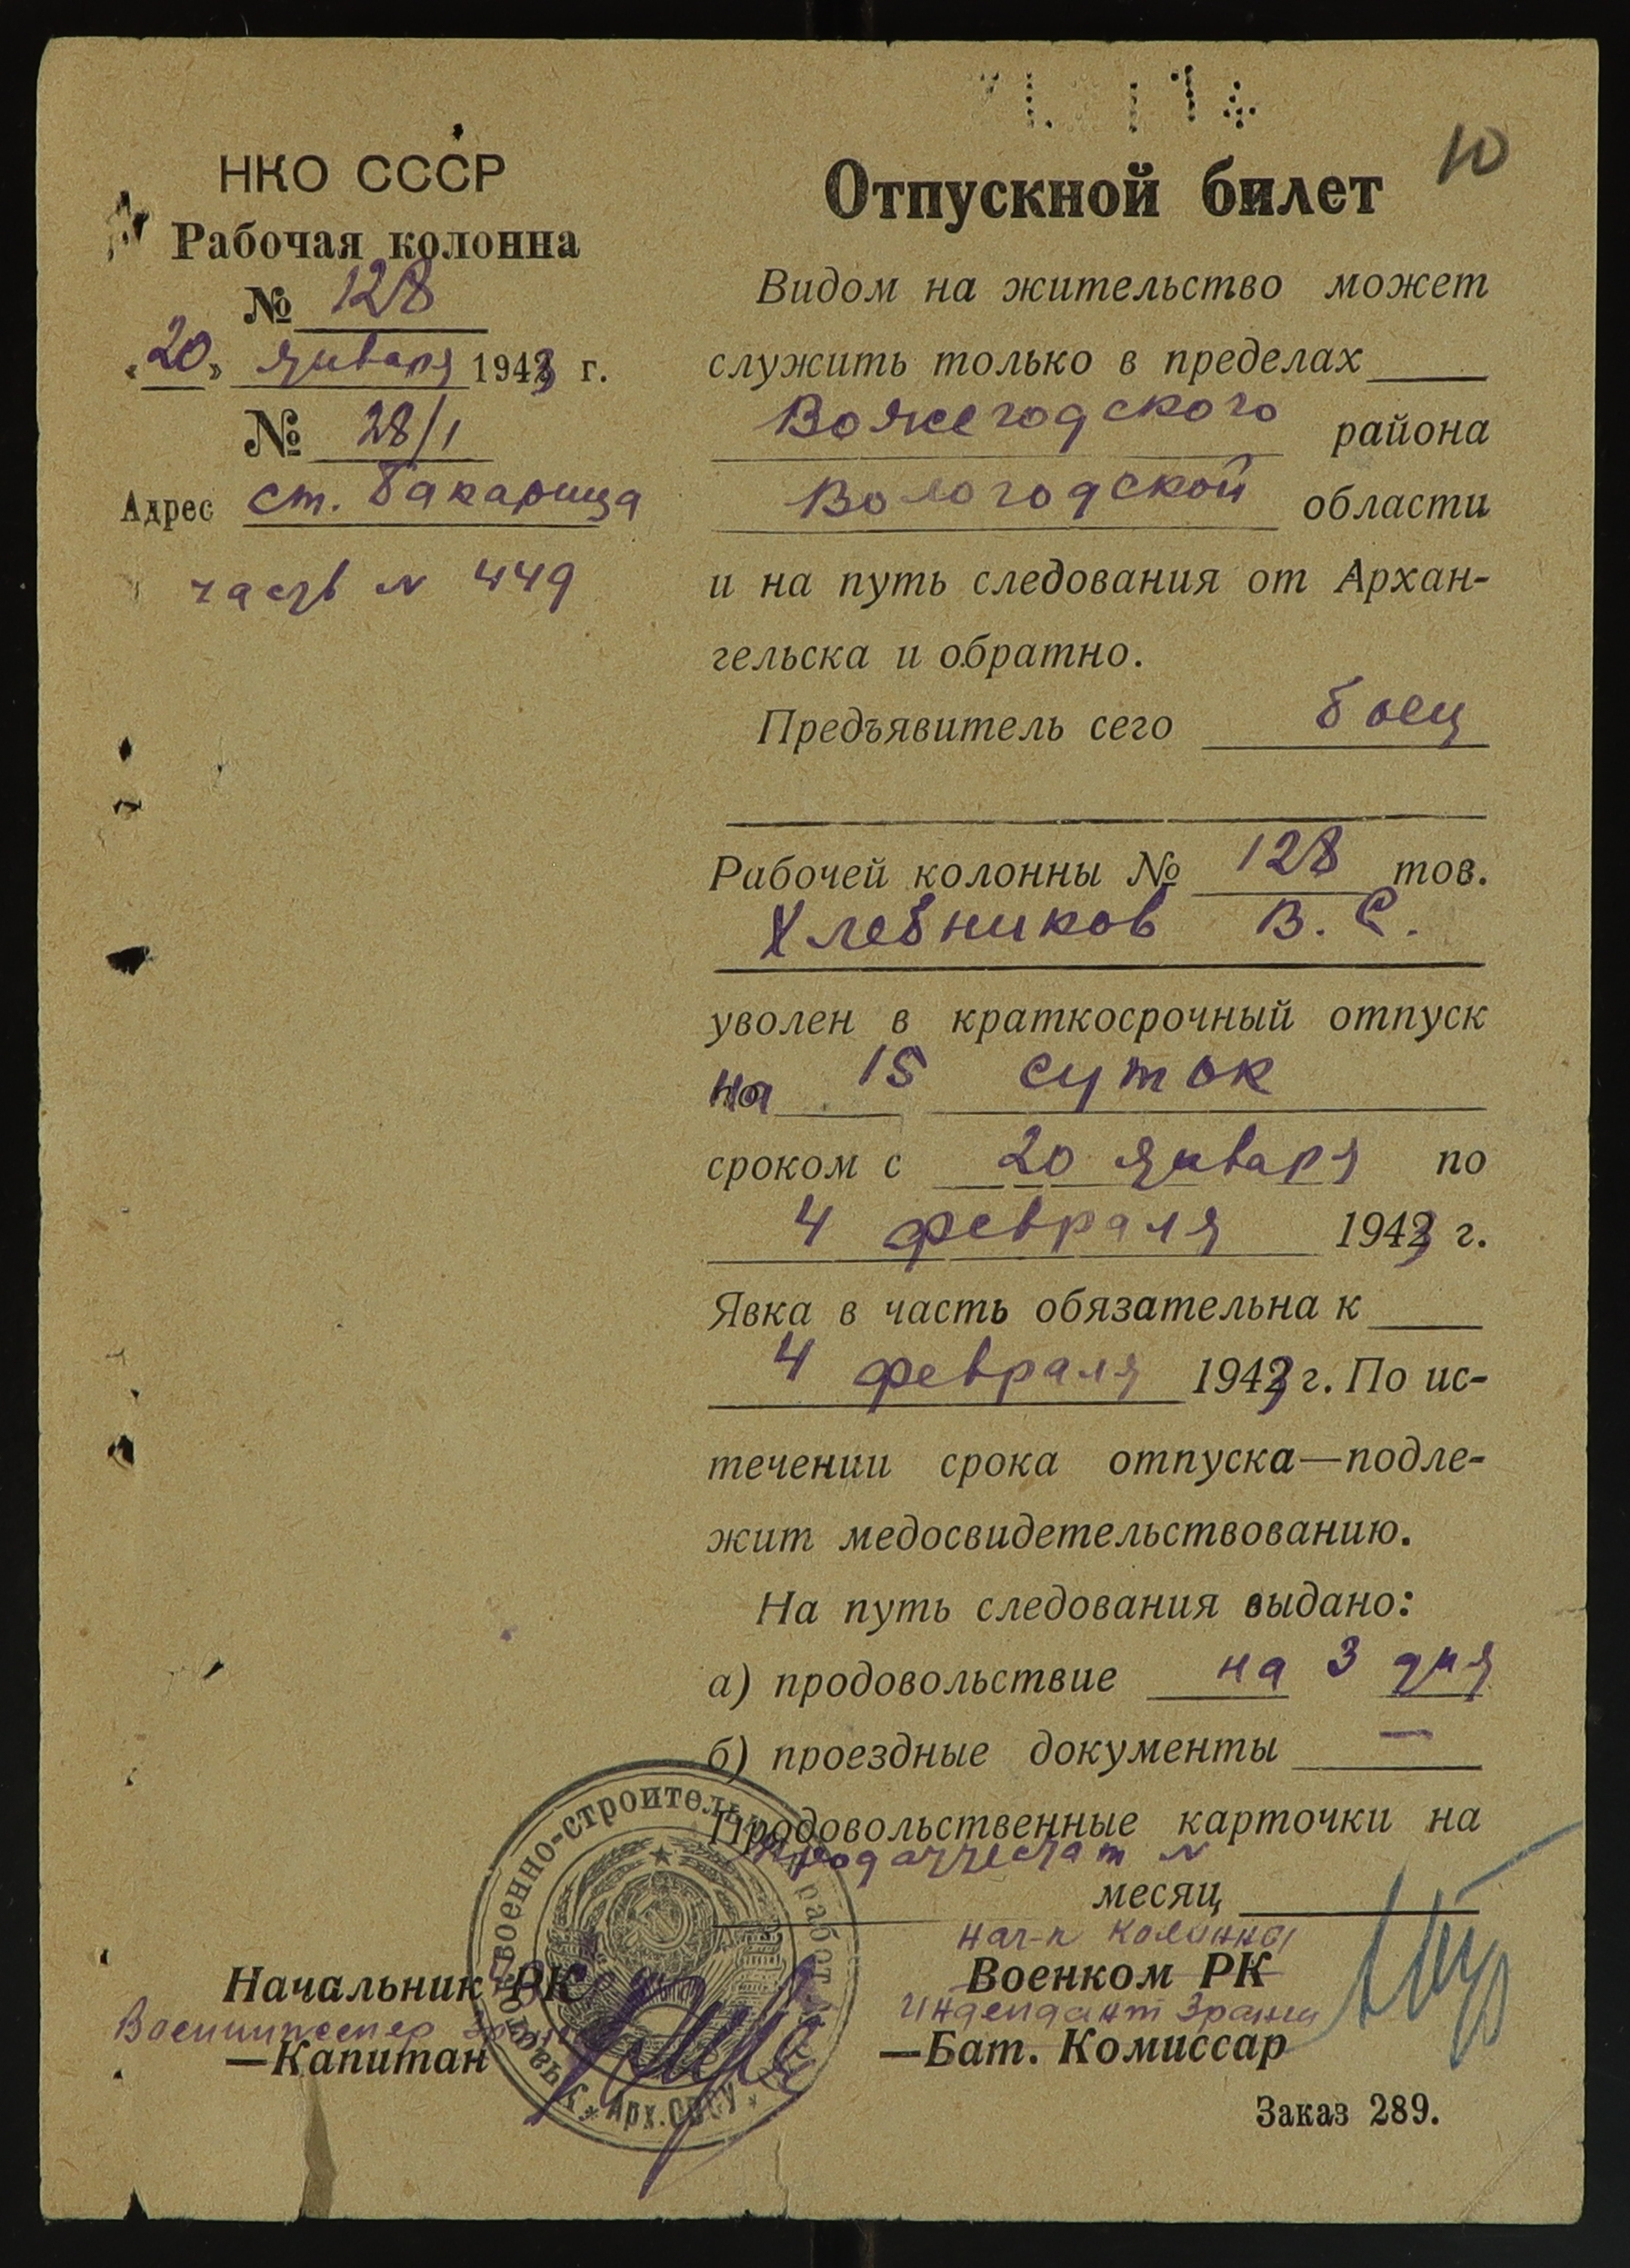 10
НКО СССР
Рабочая колонна
№ 128
«20» января 1943 г.
№ 28/1
Адрес ст. Бакарица
часть № 449
Отпускной билет
Видом на жительство может
служить только в пределах
Вожегодского района
Вологодской области
и на путь следования от Архан-
гельска и обратно.
Предъявитель сего боец
Рабочей колонны № 128 тов.
Хлебников В. С.
уволен в краткосрочный отпуск
на 15 суток
сроком с 20 января по
4 февраля 1943 г.
Явка в часть обязательна к
4 февраля 1943 г. По ис-
течении срока отпуска—подле-
жит медосвидетельствованию.
На путь следования выдано:
а) продовольствие на 3 дня
б) проездные документы —
Продовольственные карточки на
продаттестат №
месяц
Начальник РК
Военинженер
—Капитан
нач-к колонны
Военком РК
Интендант 3 ранга
—Бат. Комиссар
военно-строительных работ
Арх.
Заказ 289.